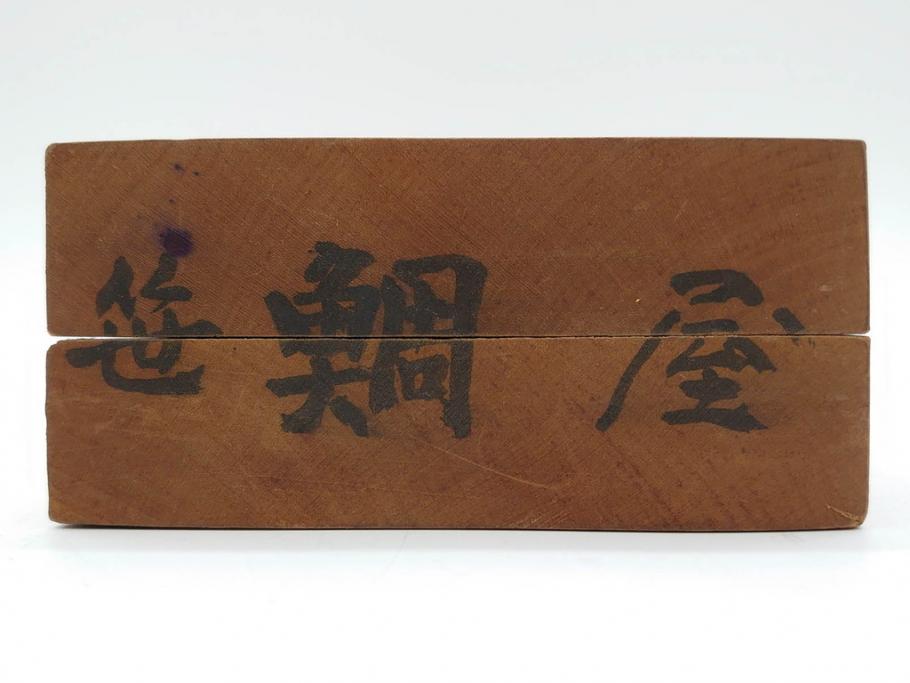 笹鯛屋